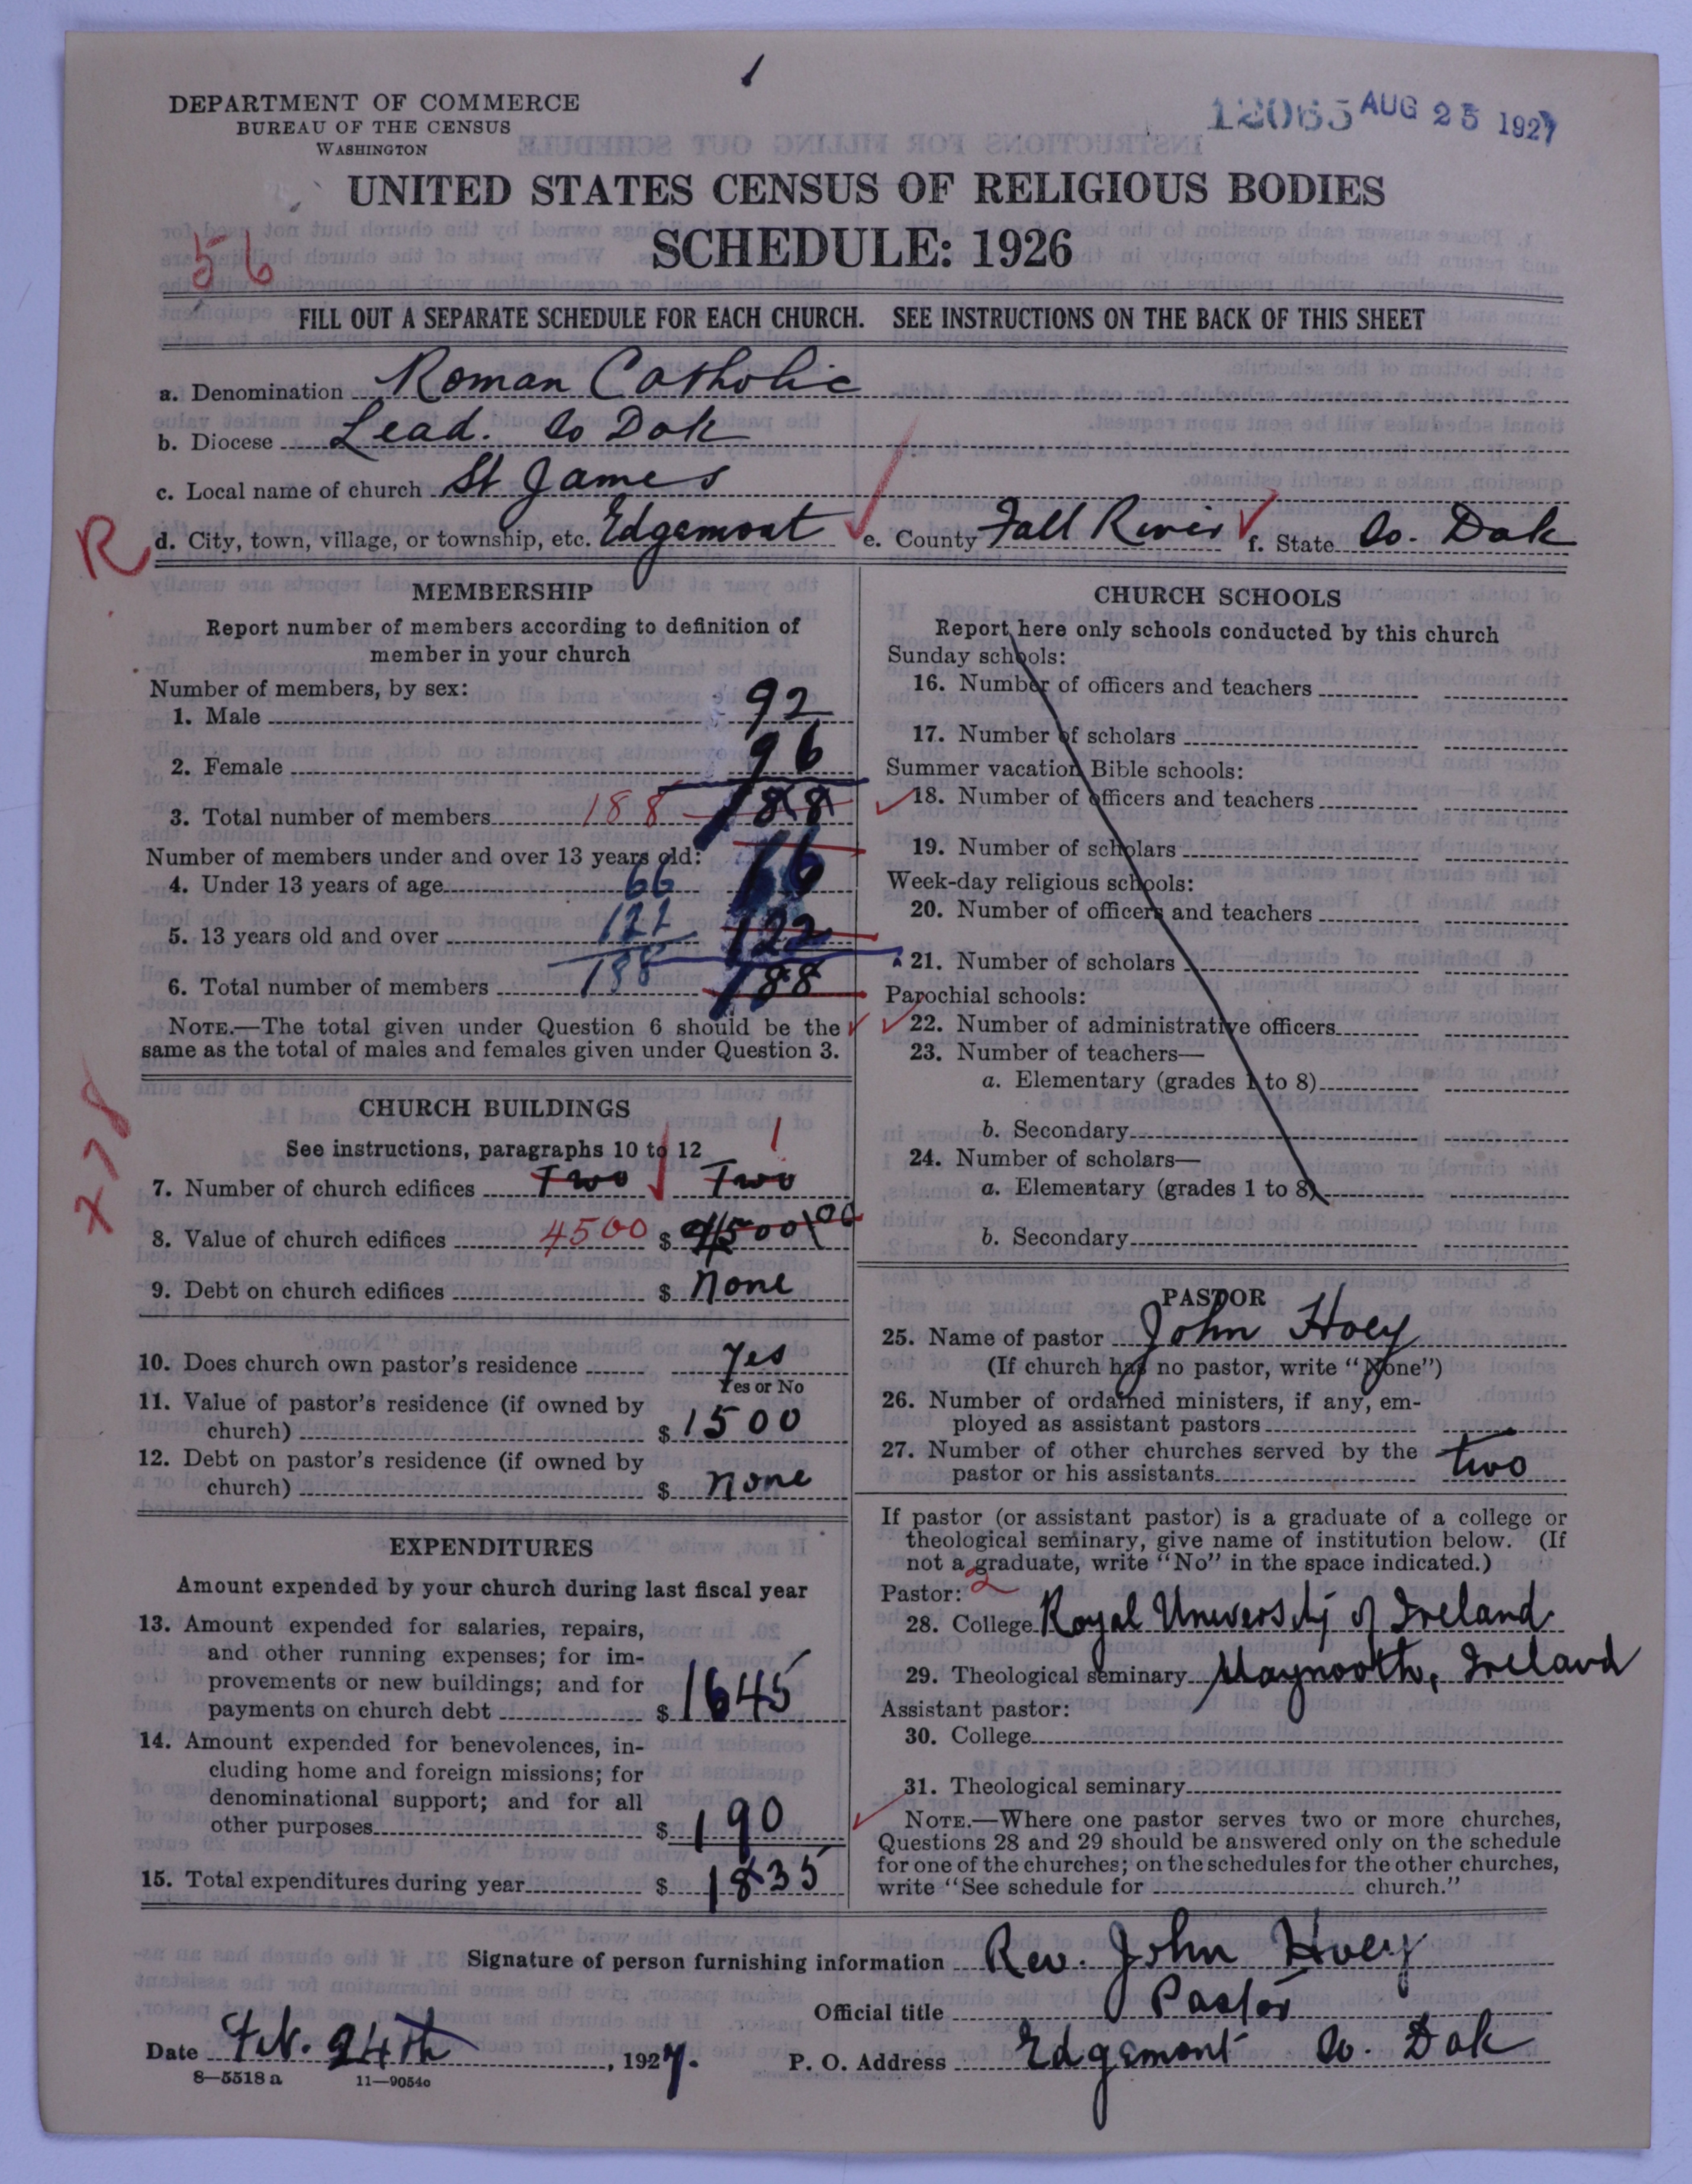 DEPARTMENT OF COMMERCE
BUREAU OF THE CENSUS
WASHINGTON
12065 AUG 25 1927
UNITED STATES CENSUS OF RELIGIOUS BODIES
SCHEDULE: 1926
56
FILL OUT A SEPARATE SCHEDULE FOR EACH CHURCH. SEE INSTRUCTIONS ON THE BACK OF THIS SHEET
a. Denomination Roman Catholic
b. Diocese Lead. So Dak
c. Local name of church St James
R
d. City, town, village, or township, etc. Edgemont e. County Fall River f. State So. Dak
MEMBERSHIP
Report number of members according to definition of
member in your church
Number of members, by sex:
1. Male 92
2. Female 96
3. Total number of members 188 188
Number of members under and over 13 years old:
4. Under 13 years of age 66 66
5. 13 years old and over 122 122
6. Total number of members 188 188
NOTE.—The total given under Question 6 should be the
same as the total of males and females given under Question 3.
CHURCH BUILDINGS
See instructions, paragraphs 10 to 12 1
7. Number of church edifices Two Two
8. Value of church edifices 4500 $ 4500 00
9. Debt on church edifices $ None
10. Does church own pastor's residence Yes
Yes or No
11. Value of pastor's residence (if owned by
church) $ 1500
12. Debt on pastor's residence (if owned by
church) $ None
EXPENDITURES
Amount expended by your church during last fiscal year
13. Amount expended for salaries, repairs,
and other running expenses; for im-
provements or new buildings; and for
payments on church debt $ 1645
14. Amount expended for benevolences, in-
cluding home and foreign missions; for
denominational support; and for all
other purposes $ 190
15. Total expenditures during year $ 1835
CHURCH SCHOOLS
Report here only schools conducted by this church
Sunday schools:
16. Number of officers and teachers
17. Number of scholars
Summer vacation Bible schools:
18. Number of officers and teachers
19. Number of scholars
Week-day religious schools:
20. Number of officers and teachers
21. Number of scholars
Parochial schools:
22. Number of administrative officers
23. Number of teachers—
a. Elementary (grades 1 to 8)
b. Secondary
24. Number of scholars—
a. Elementary (grades 1 to 8)
b. Secondary
PASTOR
25. Name of pastor John Hoey
(If church has no pastor, write "None")
26. Number of ordained ministers, if any, em-
ployed as assistant pastors
27. Number of other churches served by the
pastor or his assistants two
If pastor (or assistant pastor) is a graduate of a college or
theological seminary, give name of institution below. (If
not a graduate, write "No" in the space indicated.)
Pastor: 2
28. College Royal University of Ireland
29. Theological seminary Maynooth, Ireland
Assistant pastor:
30. College
31. Theological seminary
NOTE.—Where one pastor serves two or more churches,
Questions 28 and 29 should be answered only on the schedule
for one of the churches; on the schedules for the other churches,
write "See schedule for church."
Signature of person furnishing information Rev. John Hoey
Official title Pastor
Date Feb. 24th, 1927. P. O. Address Edgemont So. Dak
8—5518 a 11—9054o